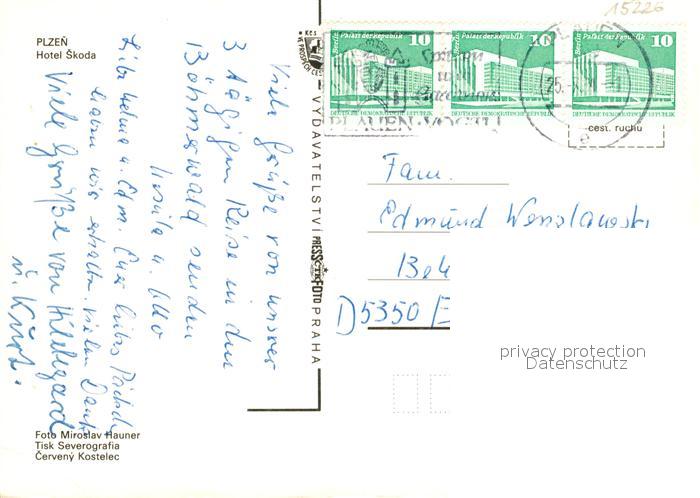 15226
PLZEŇ
Hotel Škoda
Viele Grüße von unsrer
3 tägigen Reise in den
Böhmerwald senden
Ursula u. Otto
Liebe Helma u. Edm. Euer liebes Päckch.
haben wir erhalten. Vielen Dank
Viele Grüße von Hildegard
u. Kurt.
Foto Miroslav Hauner
Tisk Severografia
Červený Kostelec
Kčs
VE PROSPĚCH
VYDAVATELSTVÍ PRESSFOTO PRAHA
Berlin Palast der Republik 10
DEUTSCHE DEMOKRATISCHE REPUBLIK
Berlin Palast der Republik 10
DEUTSCHE DEMOKRATISCHE REPUBLIK
Berlin Palast der Republik 10
DEUTSCHE DEMOKRATISCHE REPUBLIK
PLAUEN·VOGTL
PLAUEN
cest. ruchu
Fam.
Edmund Wenslawski
D 5350 E
privacy protection
Datenschutz